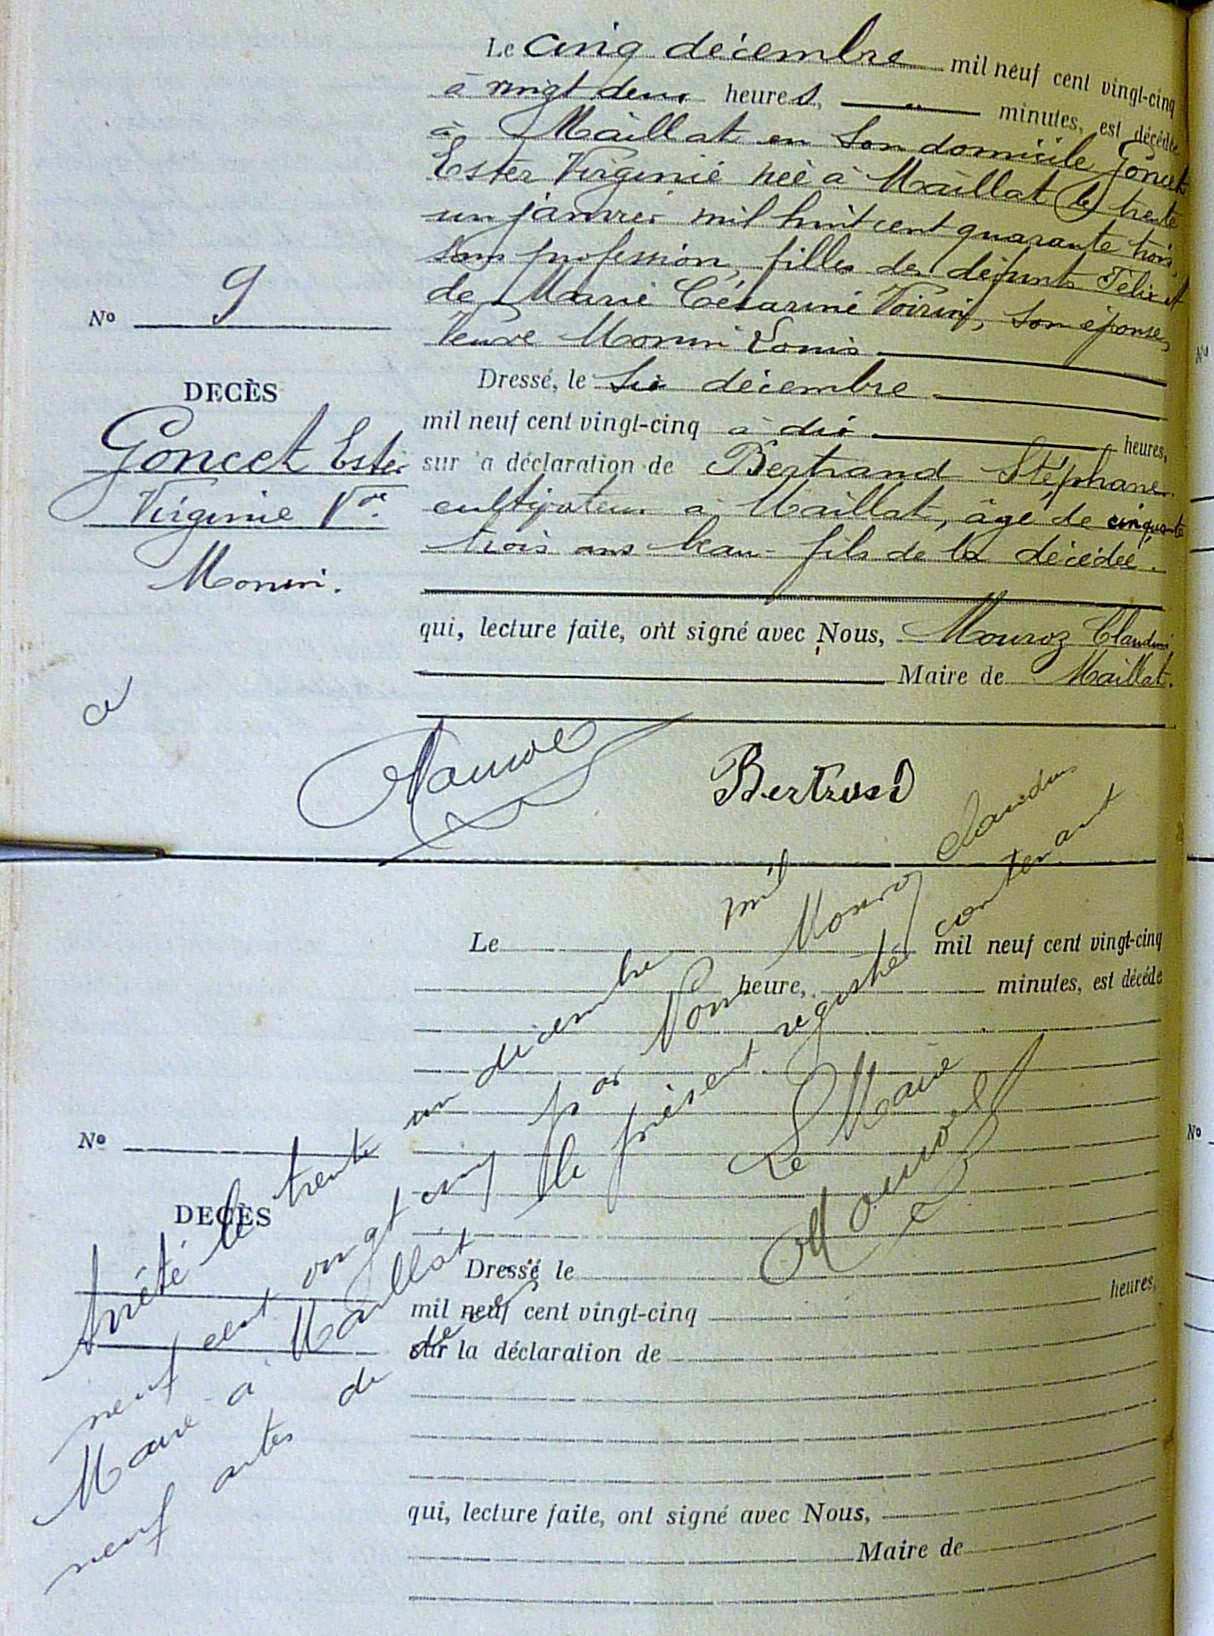 Le cinq décembre mil neuf cent vingt-cinq
à vingt deux heures, " minutes, est décédée
à Maillat en son domicile Goncet
Ester Virginie née à Maillat le trente
un janvier mil huit cent quarante trois,
sans profession, filles des défunts Félix et
de Marie Césarine Voirin, son épouse,
Veuve Monin Louis
Nº 9
DECÈS
Goncet Ester
Virginie Vve
Monin.
Dressé, le six décembre
mil neuf cent vingt-cinq à dix heures,
sur la déclaration de Bertrand Stéphane
cultivateur à Maillat, âgé de cinquante
trois ans beau-fils de la décédée.
qui, lecture faite, ont signé avec Nous, Mouroz Claudius
Maire de Maillat.
Bertrand
Le mil neuf cent vingt-cinq
heure, minutes, est décédé
Nº
DECÈS
Dressé le
mil neuf cent vingt-cinq heures,
sur la déclaration de
qui, lecture faite, ont signé avec Nous,
Maire de
Arrêté le trente un décembre mil
neuf cent vingt cinq par Nous Mouroz Claudius
Maire à Maillat le présent registre contenant
neuf actes de décès
Le Maire